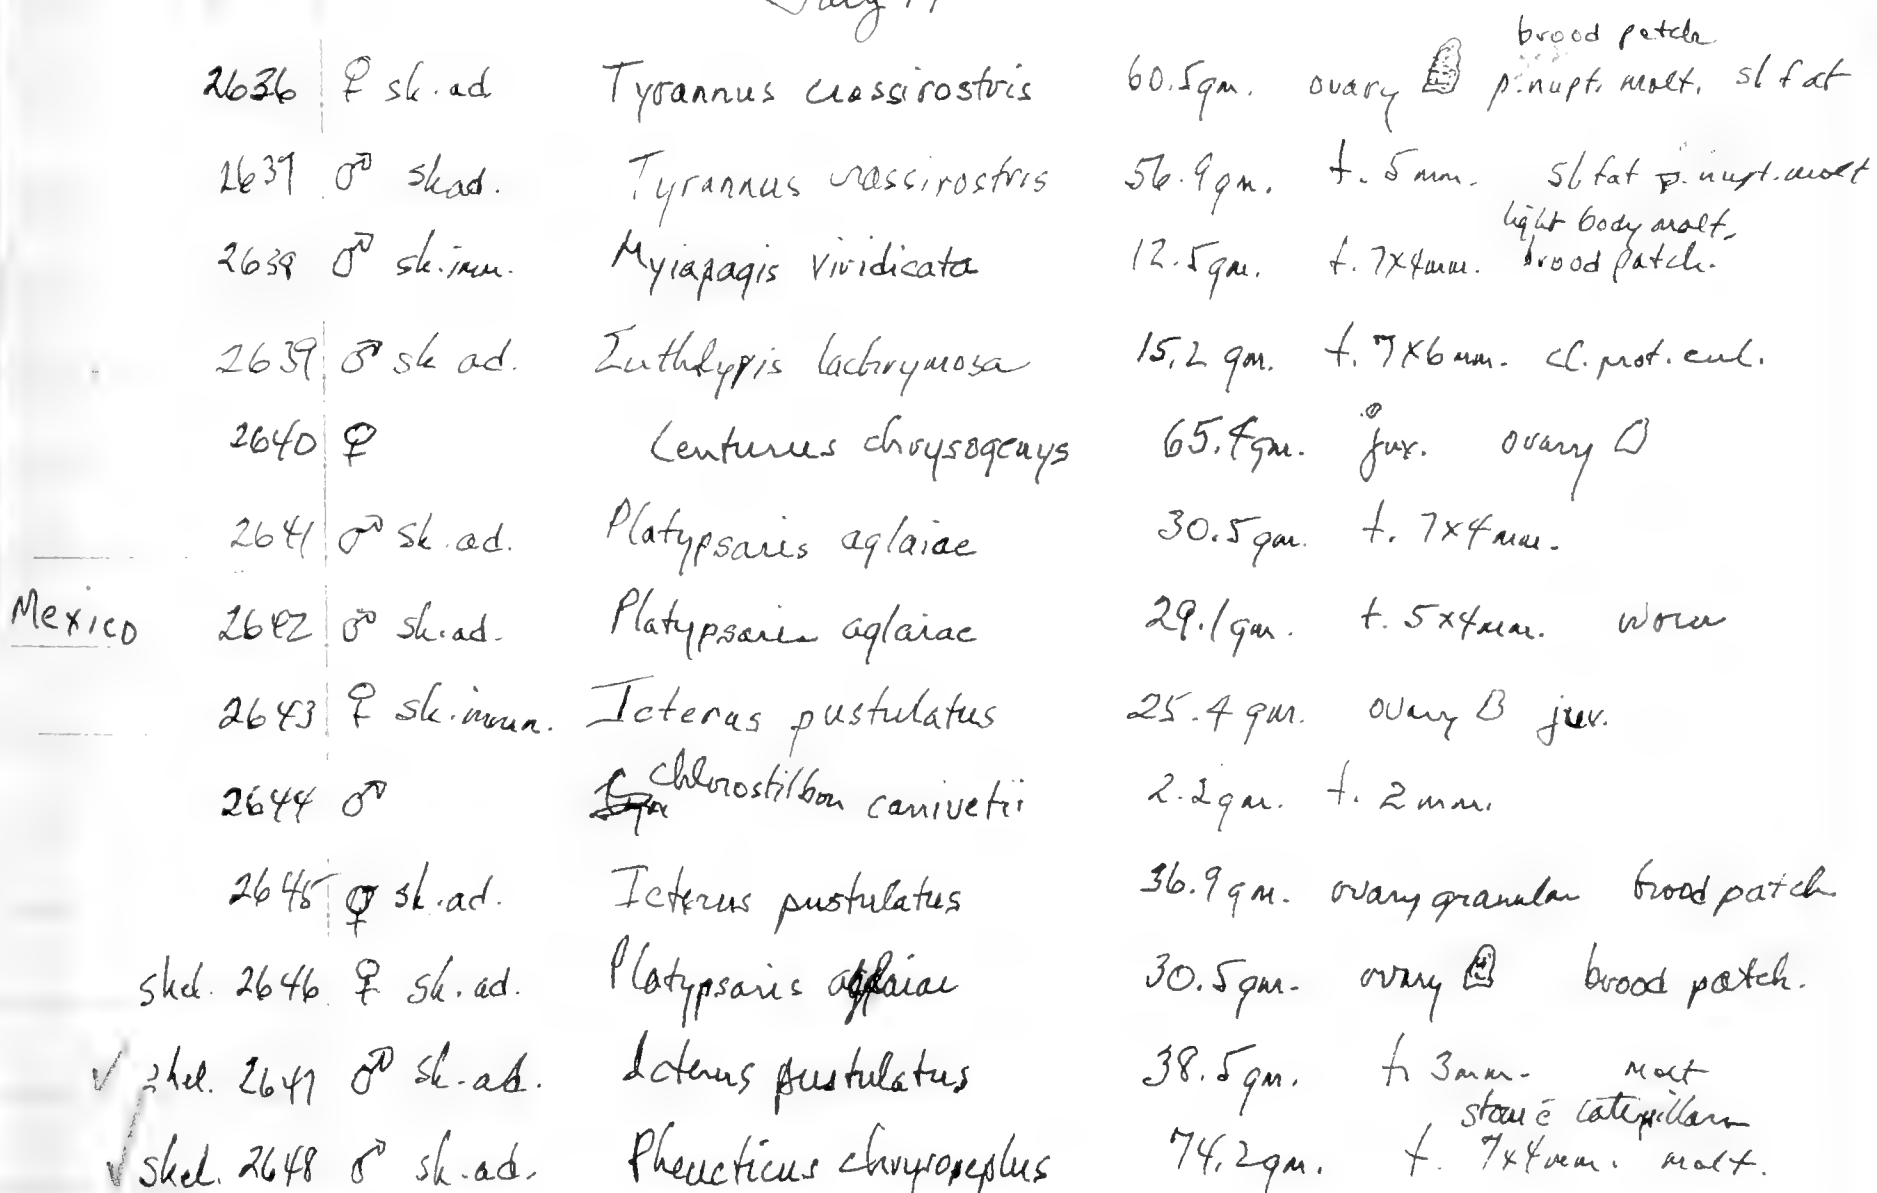 July 19
brood patch
2636 ♀ sk. ad. Tyrannus crassirostris 60.5 gm. ovary p. nupt. molt. sl fat
2637 ♂ sk ad. Tyrannus crassirostris 56.9 gm. t. 5 mm. sl fat p. nupt. molt
light body molt,
2638 ♂ sk. imm. Myiapagis viridicata 12.5 gm. t. 7x4mm. brood patch.
2639 ♂ sk ad. Euthlypis lachrymosa 15.2 gm. t. 7x6 mm. cl. prot. enl.
2640 ♀ Centurus chrysogenys 65.4 gm. juv. ovary
2641 ♂ sk. ad. Platypsaris aglaiae 30.5 gm. t. 7x4 mm.
Mexico 2642 ♂ sk. ad. Platypsaris aglaiae 29.1 gm. t. 5x4 mm. worn
2643 ♀ sk. imm. Icterus pustulatus 25.4 gm. ovary juv.
2644 ♂ chlorostilbon canivetii 2.2 gm. t. 2 mm.
2645 ♀ sk. ad. Icterus pustulatus 36.9 gm. ovary granular brood patch
skel. 2646 ♀ sk. ad. Platypsaris aglaiae 30.5 gm. ovary brood patch.
✓ skel. 2647 ♂ sk. ad. Icterus pustulatus 38.5 gm. t. 3mm. molt
stom c̄ caterpillars
✓ skel. 2648 ♂ sk. ad. Pheucticus chrysopeplus 74.2 gm. t. 7x4 mm. molt.